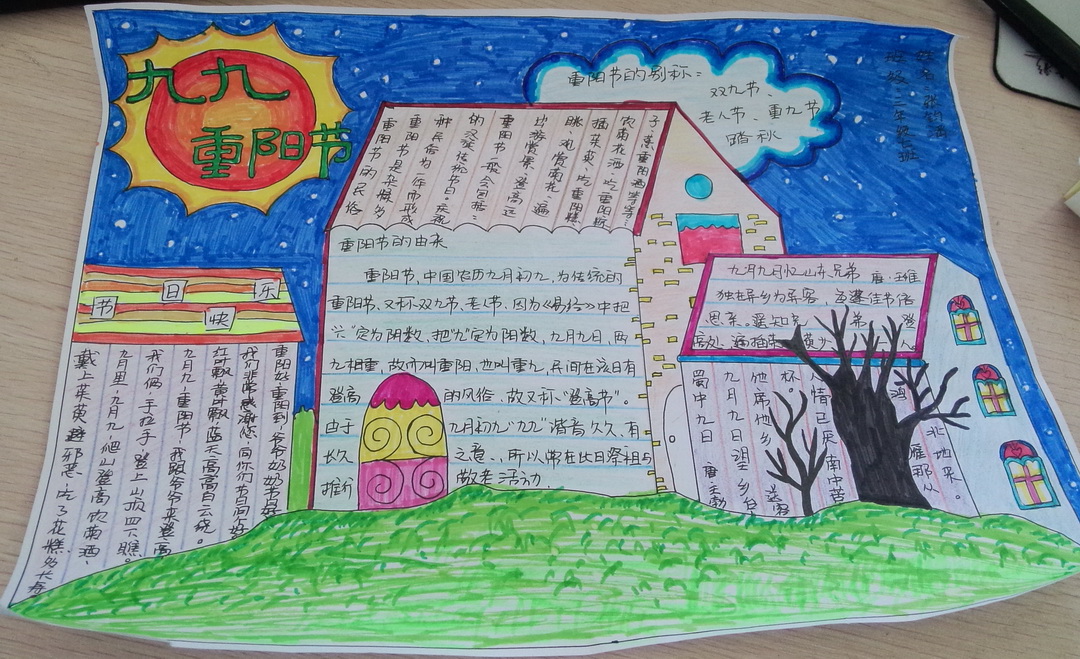 九九
重阳节
重阳节的别称：
双九节、
老人节、重九节
踏秋
重阳节的民俗
重阳节是杂糅多
种民俗为一体而形成
的汉族传统节日。庆祝
重阳节一般会包括：
出游赏景、登高远
眺、观赏菊花、遍
插茱萸、吃重阳糕
饮菊花酒
重阳节的由来
重阳节，中国农历九月初九，为传统的
重阳节，又称双九节、老人节，因为《易经》中把
六"定为阴数，把"九"定为阳数，九月九日，两
九相重，故而叫重阳，也叫重九，民间在该日有
登高的风俗，故又称"登高节"。
由于九月初九"九九"谐音久久，有
长久之意、所以常在此日祭祖与
推行敬老活动，
节日快乐
重阳好重阳到，爷爷奶奶
我们非常感谢您，同你们
红叶飘，黄叶飘，蓝天高高白云绕。
九月九，重阳节，我跟爷爷来登高
我们俩，手拉手，登上山顶四下瞧。
九月里，九月九，爬山登高饮菊酒、
戴上茱萸避邪恶，吃了花糕多长寿
九月九日忆山东兄弟 唐·王维
独在异乡为异客，每逢佳节倍
思亲。遥知兄弟登
高处，遍插茱萸少人
蜀中九日 唐 王勃
九月九日望乡台
他席他乡送客
杯。
人情已厌南中苦
鸿雁那从
北地来。